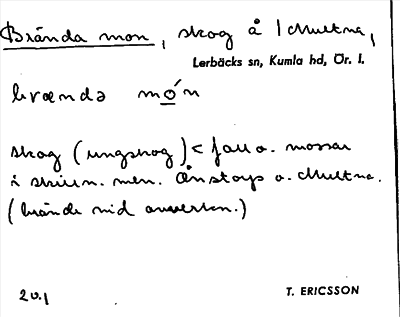 Brända mon, skog å 1 Multna,
Lerbäcks sn, Kumla hd, Ör. l.
brændə mo´n
skog (ungskog) < fall o. mossar
i skilln. men. Ånstorp o. Multna.
(brände vid
20.1
T. ERICSSON